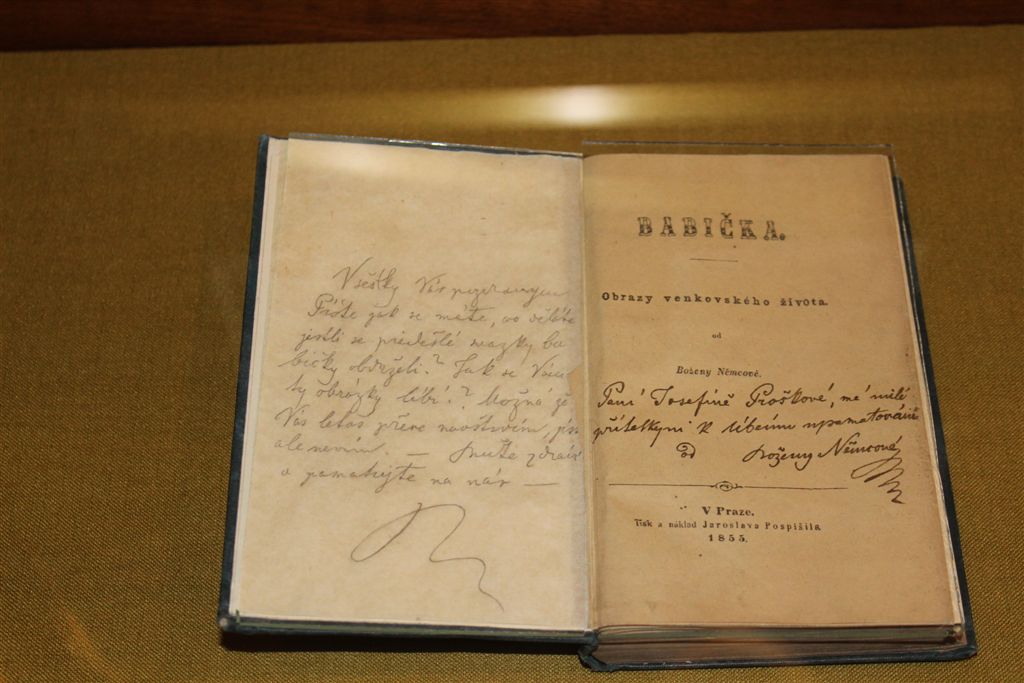 Všecky Vás pozdravujem
Pište jak se máte, co děláte
jestli se předešlé svazky ba
bičky obdrželi? Jak se Vám
ty obrázky líbí? Možná že
Vás letos přece navštívím,
ale nevím. — Buďte zdrávi
a pamatujte na nás —
BABIČKA.
Obrazy venkovského života.
od
Boženy Němcové.
Paní Josefíně Proškové, mé milé
přítelkyni k líbému upamatování
od Boženy Němcové
V Praze.
Tisk a náklad Jaroslava Pospíšila
1855.